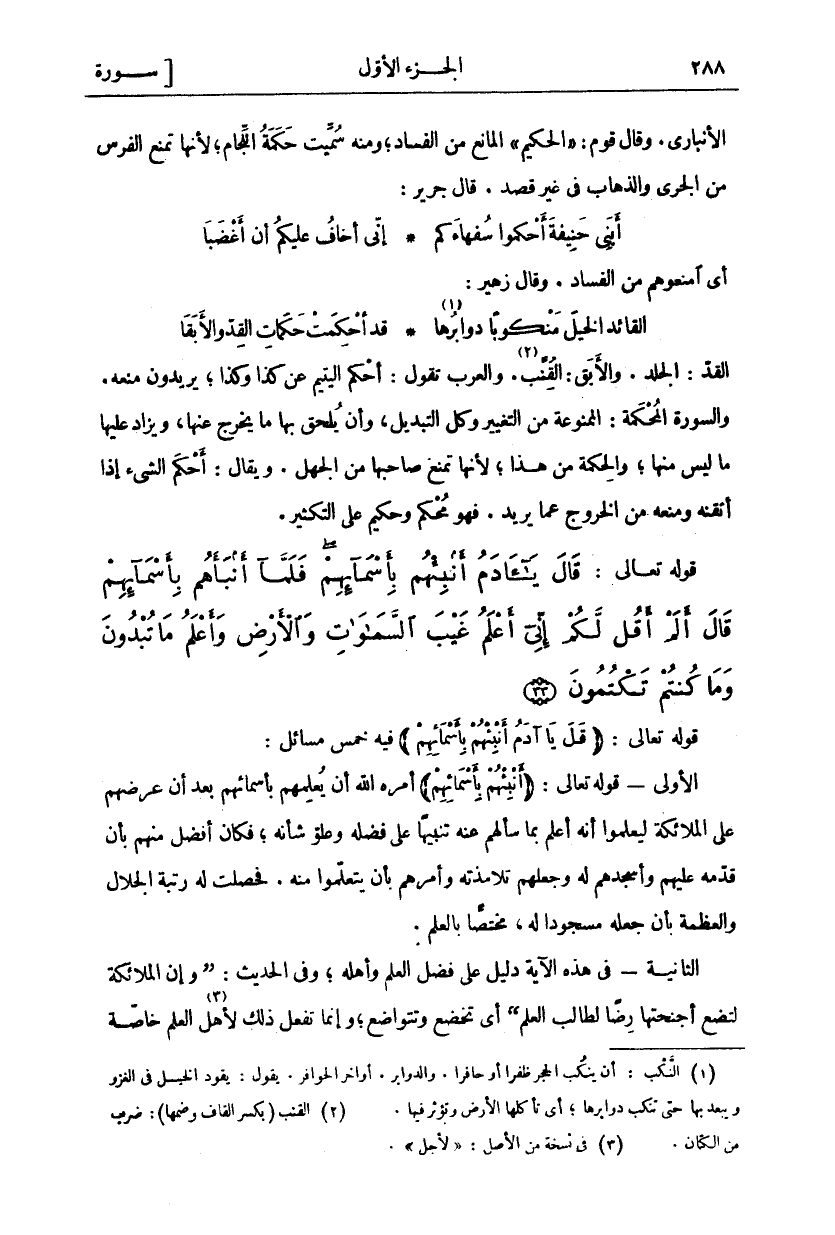 ٢٨٨ الجزء الأول [ سورة
الأنبارى . وقال قوم : «الحكيم» المانع من الفساد ؛ ومنه سُمِّيت حَكَمَةُ اللِّجام ؛ لأنها تمنع الفرس
من الجرى والذهاب فى غير قصد . قال جرير :
أَبَنِى حَنِيفةَ أَحكموا سُفهاءَكم * إنّى أخافُ عليكمُ أن أَغْضَبَا
أى ٱمنعوهم من الفساد . وقال زهير :
القائد الخيلَ مَنْكوبًا دوابرُها (١) * قد أُحْكِمَتْ حَكَماتِ القِدّ والأَبَقَا
القدّ : الجلد . والأَبَق : القُنَّب (٢). والعرب تقول : أحْكم اليتيم عن كذا وكذا ؛ يريدون منعه .
والسورة المُحْكَمة : الممنوعة من التغيير وكل التبديل ، وأن يُلحق بها ما يخرج عنها ، ويزاد عليها
ما ليس منها ؛ والحكمة من هذا ؛ لأنها تمنع صاحبها من الجهل . ويقال : أَحْكَم الشىء إذا
أتقنه ومنعه من الخروج عما يريد . فهو مُحْكم وحكيم على التكثير .
قوله تعالى : قَالَ يَـٰٓـَٔادَمُ أَنۢبِئْهُم بِأَسْمَآئِهِمْ ۖ فَلَمَّآ أَنۢبَأَهُم بِأَسْمَآئِهِمْ
قَالَ أَلَمْ أَقُل لَّكُمْ إِنِّىٓ أَعْلَمُ غَيْبَ ٱلسَّمَـٰوَٰتِ وَٱلْأَرْضِ وَأَعْلَمُ مَا تُبْدُونَ
وَمَا كُنتُمْ تَكْتُمُونَ ٣٣
قوله تعالى : ﴿ قَالَ يَا آدَمُ أَنْبِئْهُمْ بِأَسْمَائِهِمْ ﴾ فيه خمس مسائل :
الأولى — قوله تعالى : ﴿أَنْبِئْهُمْ بِأَسْمَائِهِمْ﴾ أمره الله أن يُعلِمهم بأسمائهم بعد أن عرضهم
على الملائكة ليعلموا أنه أعلم بما سألهم عنه تنبيهًا على فضله وعلوّ شأنه ؛ فكان أفضل منهم بأن
قدّمه عليهم وأسجدهم له وجعلهم تلامذته وأمرهم بأن يتعلّموا منه . فحصلت له رتبة الجلال
والعظمة بأن جعله مسجودا له ، مختصًّا بالعلم .
الثانيــة — فى هذه الآية دليل على فضل العلم وأهله ؛ وفى الحديث : ”وإن الملائكة
لتضع أجنحتها رِضًا لطالب العلم“ أى تخضع وتتواضع ؛ وإنما تفعل ذلك لأهل (٣) العلم خاصّة
(١) النَّكْب : أن ينكُب الحجر ظفرا أو حافرا . والدوابر . أواخر الحوافر . يقول : يقود الخيل فى الغزو
ويبعد بها حتى تنكب دوابرها ؛ أى تأكلها الأرض وتؤثر فيها . (٢) القنب (بكسر القاف وضمها) : ضرب
من الكتان . (٣) فى نسخة من الأصل : « لأجل » .